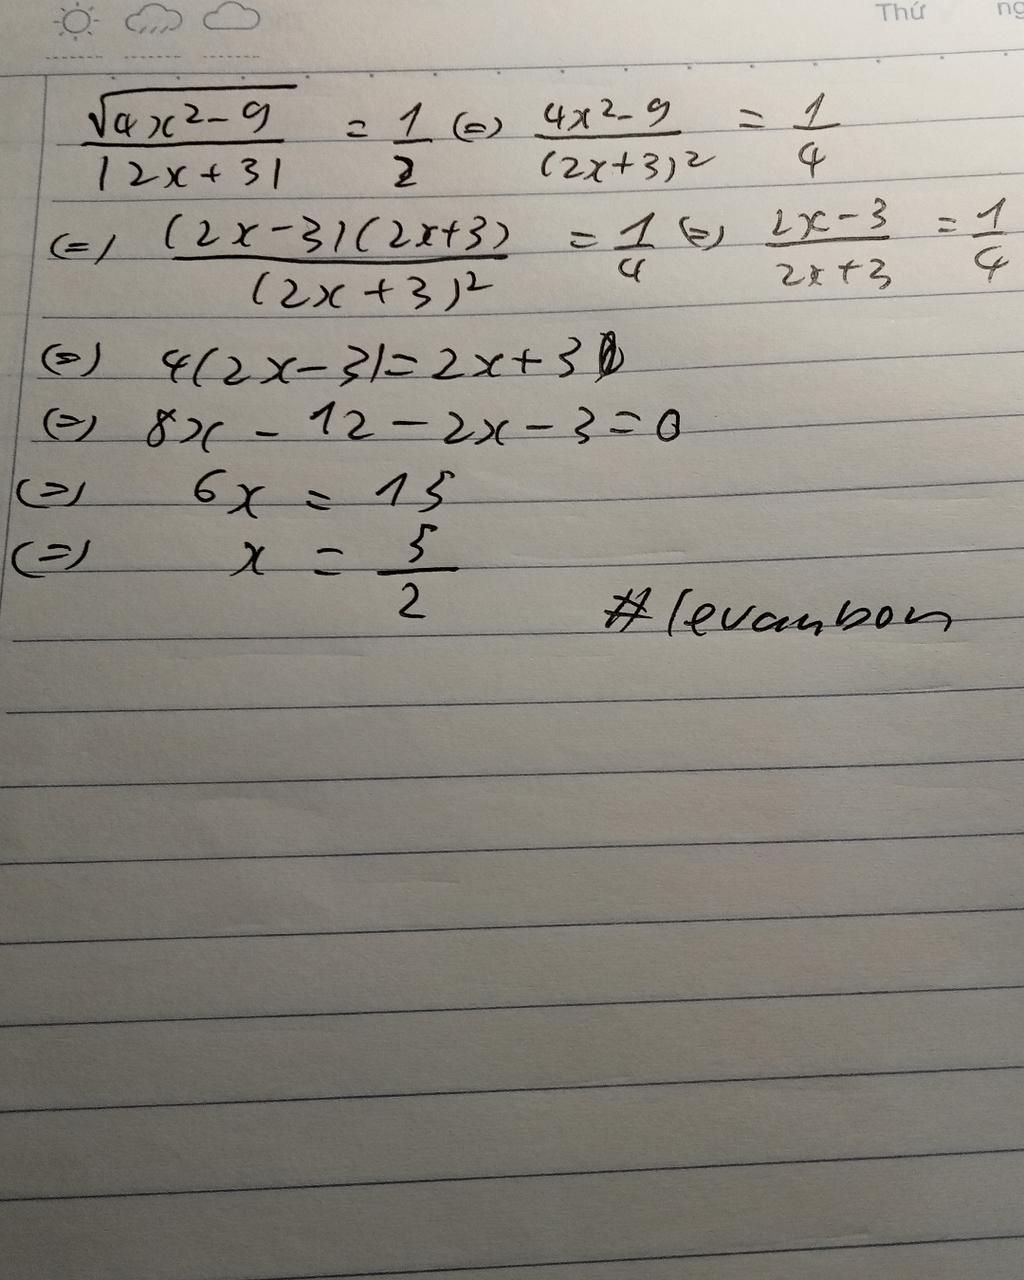 Thứ ng
√(4x²-9) / |2x+3| = 1/2 (=) 4x²-9 / (2x+3)² = 1/4
(=) (2x-3)(2x+3) / (2x+3)² = 1/4 (=) 2x-3 / 2x+3 = 1/4
(=) 4(2x-3)=2x+3
(=) 8x - 12 - 2x - 3 = 0
(=) 6x = 15
(=) x = 5/2
#levanbon